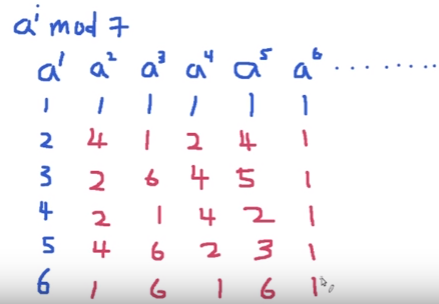 aⁱ mod 7
a¹ a² a³ a⁴ a⁵ a⁶ ........
1 1 1 1 1 1
2 4 1 2 4 1
3 2 6 4 5 1
4 2 1 4 2 1
5 4 6 2 3 1
6 1 6 1 6 1